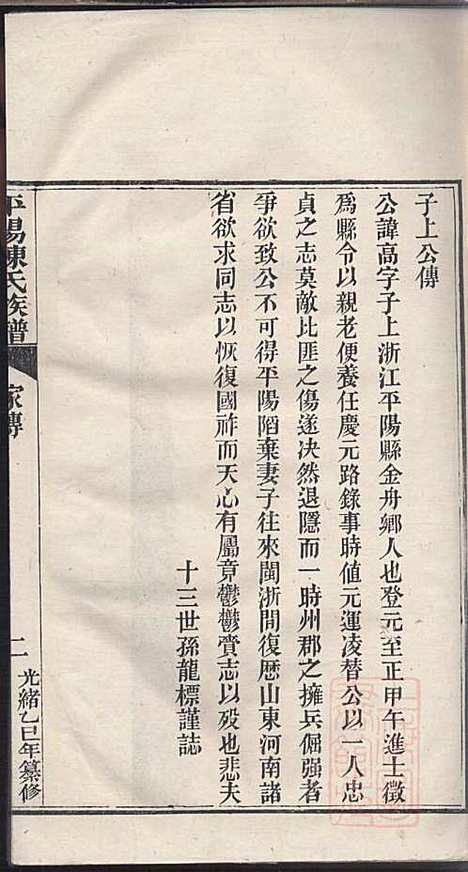 子上公傳
公諱高字子上浙江平陽縣金舟鄉人也登元至正甲午進士徵
爲縣令以親老便養任慶元路錄事時値元運凌替公以一人忠
貞之志莫敵比匪之傷遂决然退隱而一時州郡之擁兵倔强者
爭欲致公不可得平陽陷棄妻子往來閩浙間復歷山東河南諸
省欲求同志以恢復國祚而天心有屬竟鬱鬱賫志以殁也悲夫
十三世孫龍標謹誌
平陽陳氏族譜
家傳
二
光緒乙巳年纂修